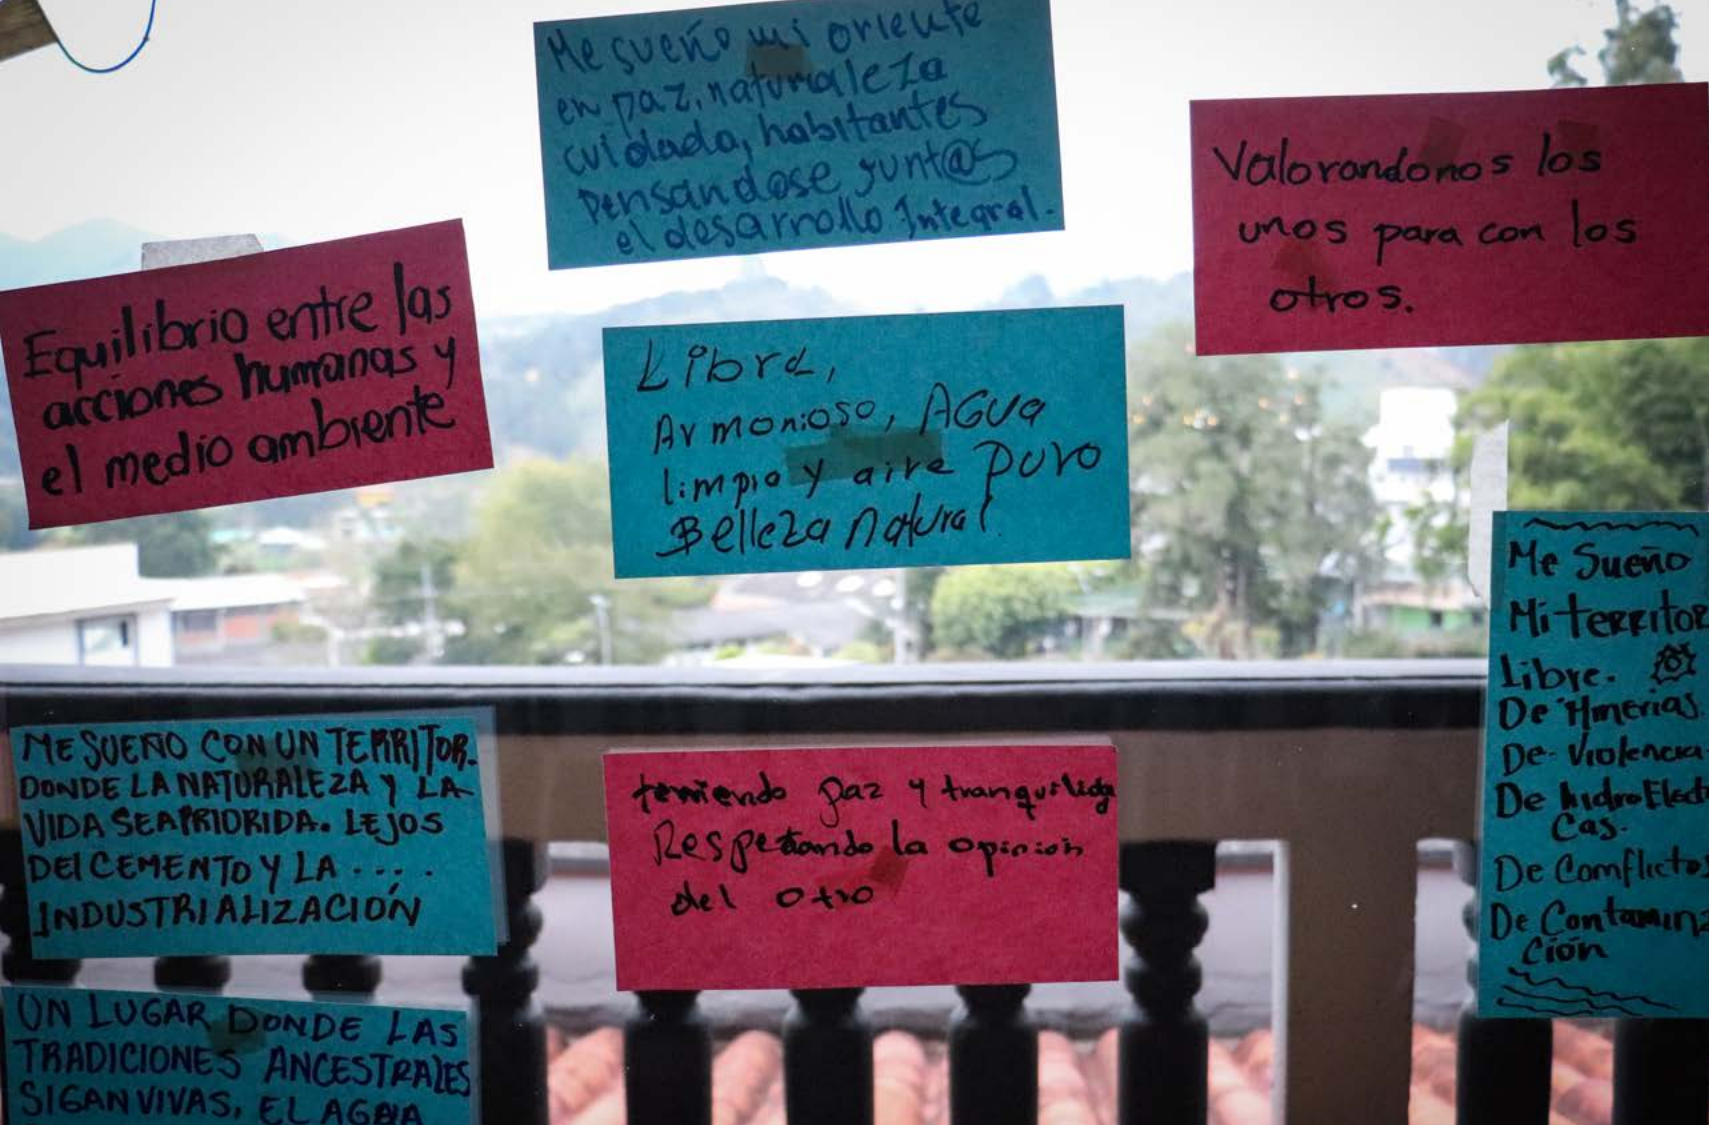 Me sueño mi oriente
en paz, naturaleza
cuidada, habitantes
pensandose junt@s
el desarrollo Integral.
Valorandonos los
unos para con los
otros.
Equilibrio entre las
acciones humanas y
el medio ambiente
Libre,
Armonioso, AGUA
limpio y aire puro
Belleza natural.
Me Sueño
Mi territor
Libre.
De Minerias.
De Violencia
De hidroElect
cas.
De Conflictos
De Contamina
ción
ME SUEÑO CON UN TERRITOR.
DONDE LA NATURALEZA Y LA
VIDA SEA PRIORIDA. LEJOS
DEl CEMENTO Y LA ....
INDUSTRIALIZACIÓN
teniendo paz y tranquilida
Respetando la opinion
del otro
UN LUGAR DONDE LAS
TRADICIONES ANCESTRALES
SIGAN VIVAS, EL AGUA